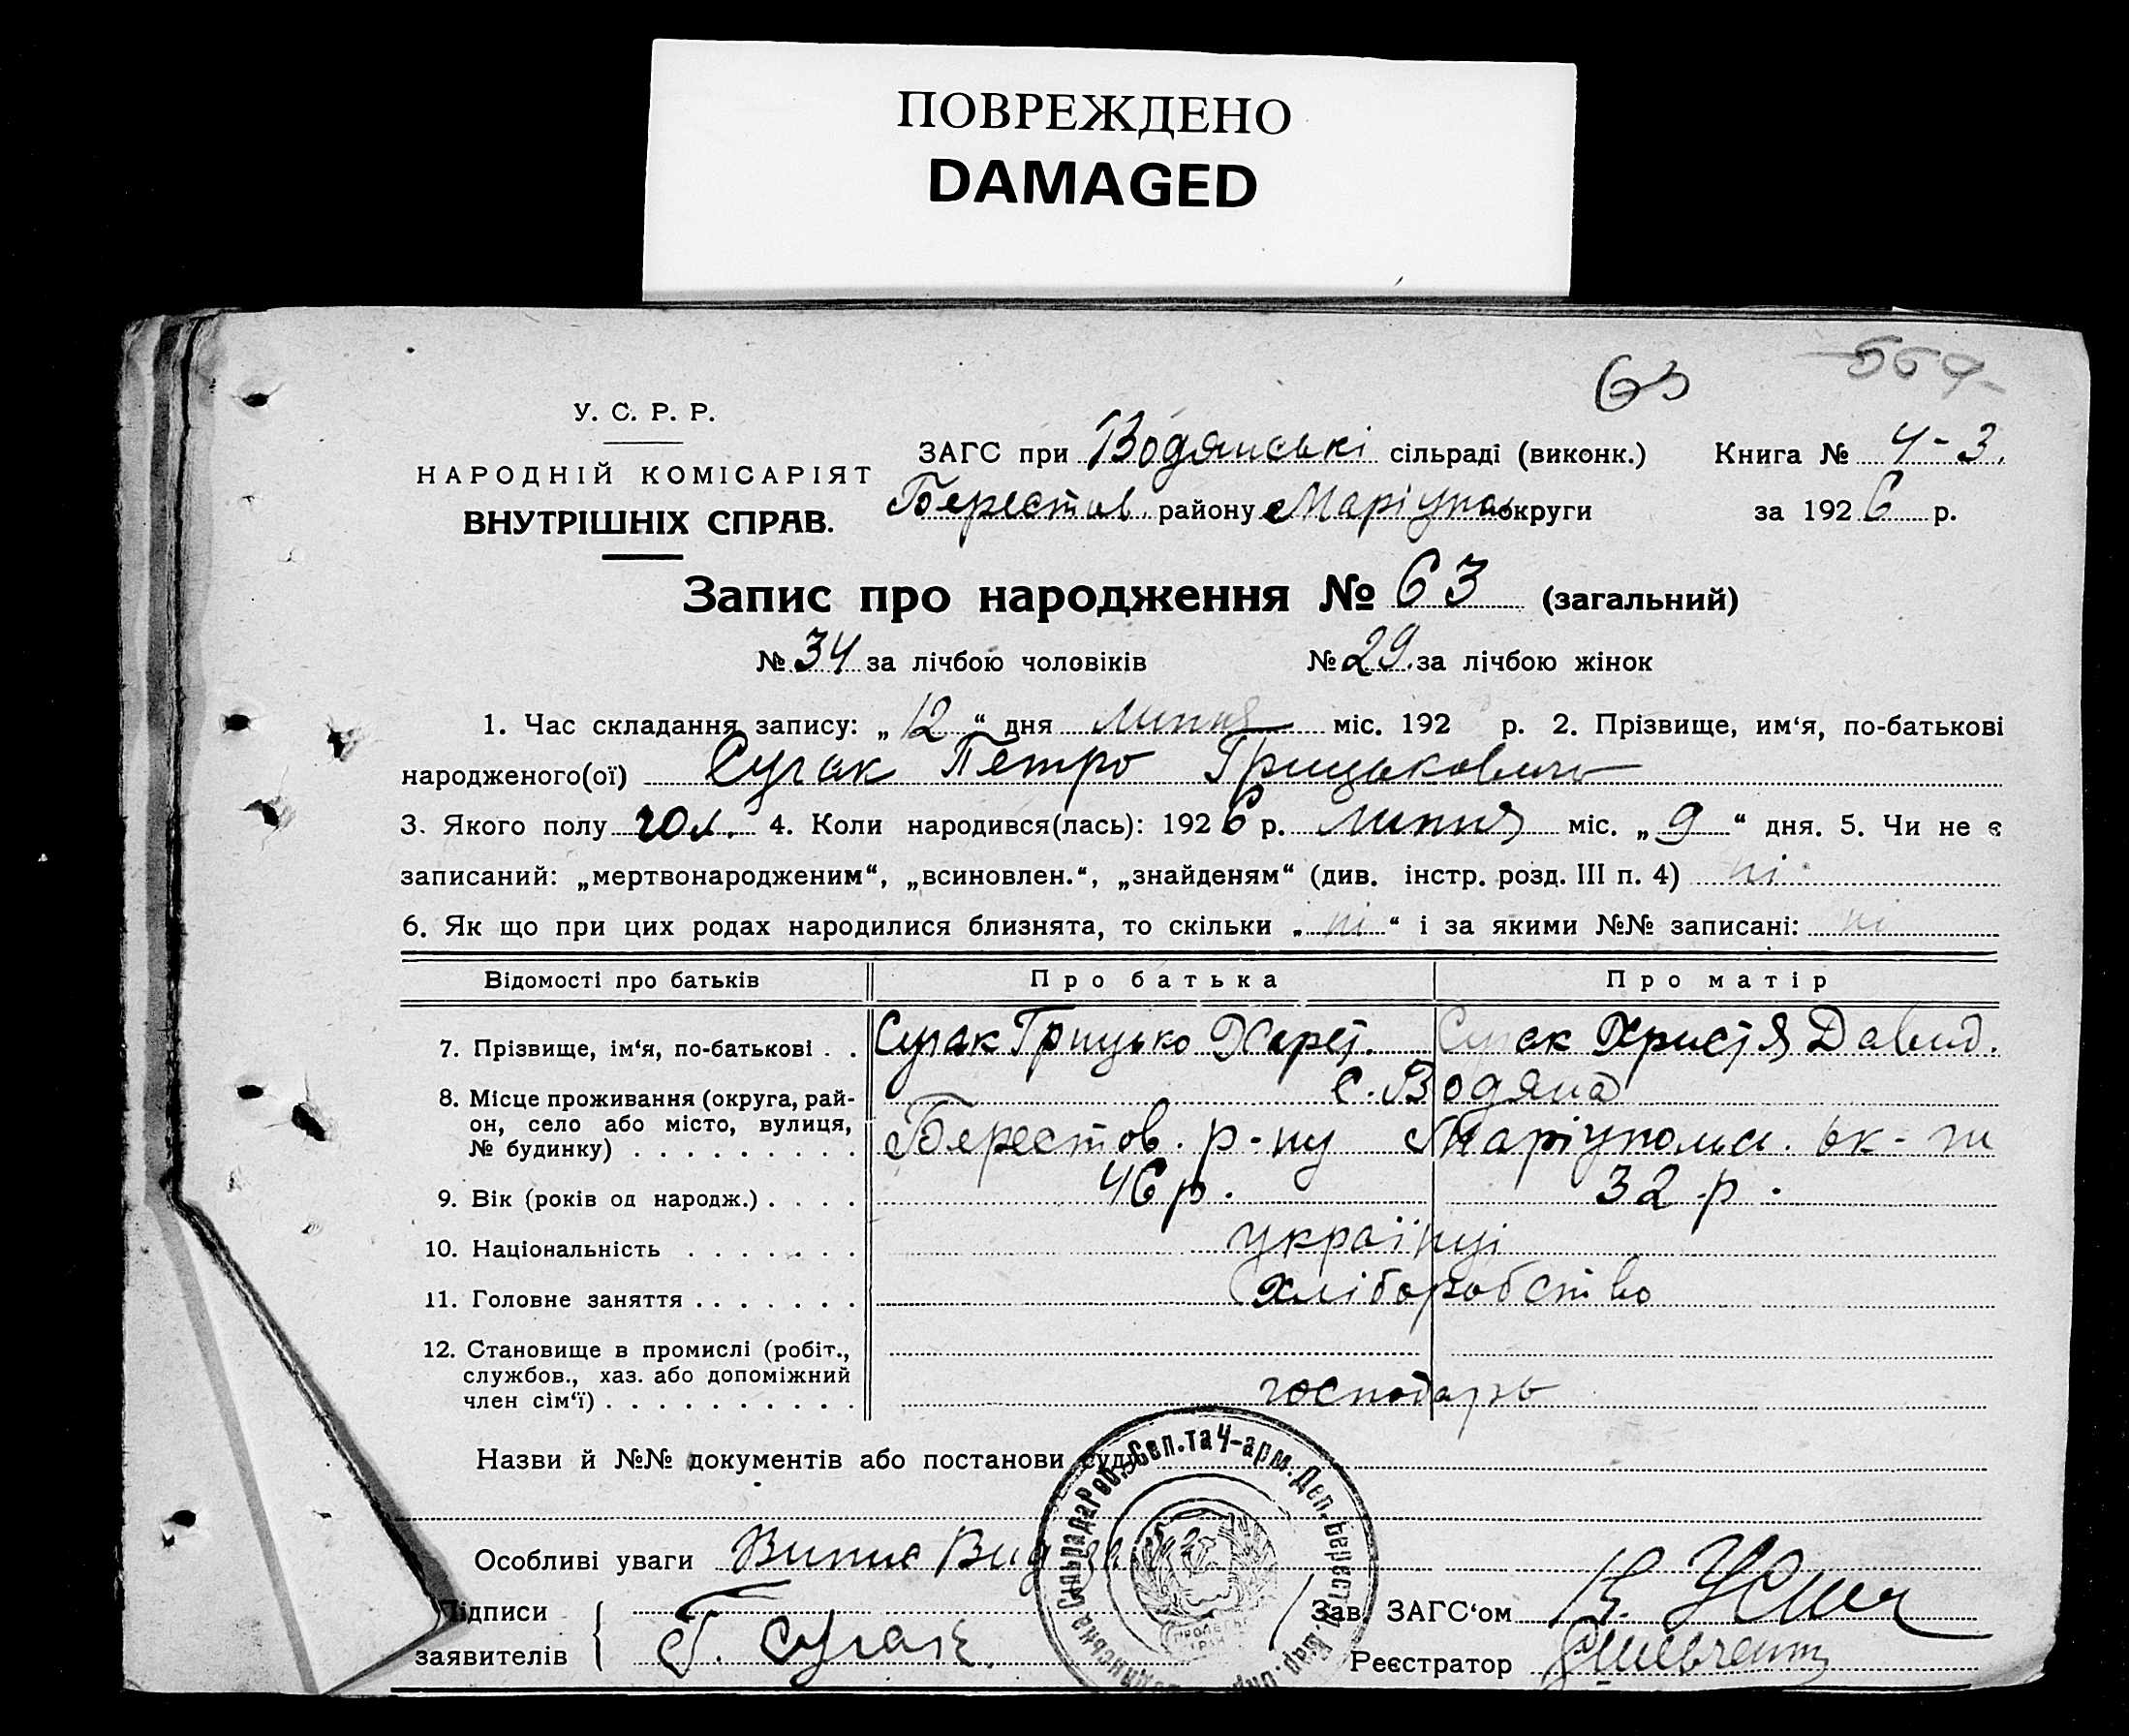 ПОВРЕЖДЕНО
DAMAGED
63
559
У. С. Р. Р.
НАРОДНІЙ КОМІСАРІЯТ
ВНУТРІШНІХ СПРАВ.
ЗАГС при Водянські сільраді (виконк.) Книга № 4-3.
Берестов. району Маріупол округи за 1926 р.
Запис про народження № 63 (загальний)
№ 34 за лічбою чоловіків № 29. за лічбою жінок
1. Час складання запису: „12“ дня липня міс. 192 р. 2. Прізвище, им‘я, по-батькові
народженого(ої) Сугак Петро Грицькович
3. Якого полу чол. 4. Коли народився(лась): 1926 р. липня міс. „9“ дня. 5. Чи не є
записаний: „мертвонародженим“, „всиновлен.“, „знайденям“ (див. інстр. розд. III п. 4) ні
6. Як що при цих родах народилися близнята, то скільки „ні“ і за якими №№ записані: ні
Відомості про батьків Про батька Про матір
7. Прізвище, ім‘я, по-батькові . . Сугак Грицько Харет. Сугак Христя Давид.
8. Місце проживання (округа, рай- с. Водяна
он, село або місто, вулиця, Берестов. р-ну Маріупольс. ок-ги
№ будинку) . . . . . . . . .
9. Вік (років од народж.) . . . . 46 р. 32 р.
10. Національність . . . . . . . українці
11. Головне заняття . . . . . . . хліборобство
12. Становище в промислі (робіт.,
службов., хаз. або допоміжний
член сім‘ї) . . . . . . . . . . господарь
Назви й №№ документів або постанови суду
Особливі уваги Випис
Підписи
заявителів Г. Сугак.
Зав. ЗАГС‘ом
Реєстратор
Сільрада Роб. Сел. та Ч-арм. Деп. Берест. Мар.